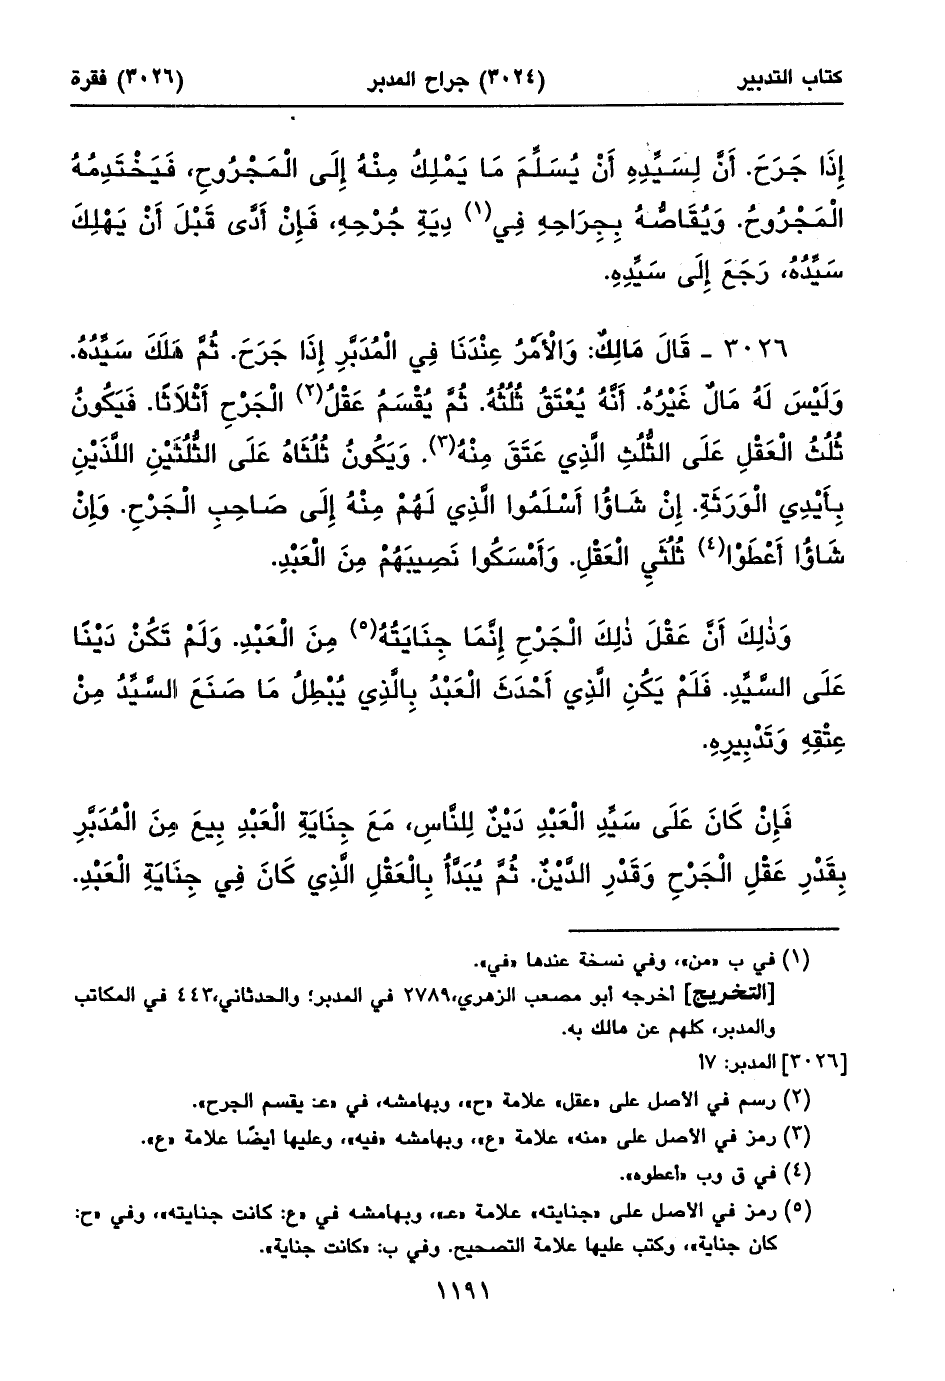 كتاب التدبير (٣٠٢٤) جراح المدبر (٣٠٢٦) فقرة
إِذَا جَرَحَ. أَنَّ لِسَيِّدِهِ أَنْ يُسَلِّمَ مَا يَمْلِكُ مِنْهُ إِلَى الْمَجْرُوحِ، فَيَخْتَدِمُهُ
الْمَجْرُوحُ. وَيُقَاصُّهُ بِجِرَاحِهِ فِي(١) دِيَةِ جُرْحِهِ، فَإِنْ أَدَّى قَبْلَ أَنْ يَهْلِكَ
سَيِّدُهُ، رَجَعَ إِلَى سَيِّدِهِ.
٣٠٢٦ - قَالَ مَالِكٌ: وَالْأَمْرُ عِنْدَنَا فِي الْمُدَبَّرِ إِذَا جَرَحَ. ثُمَّ هَلَكَ سَيِّدُهُ.
وَلَيْسَ لَهُ مَالٌ غَيْرُهُ. أَنَّهُ يُعْتَقُ ثُلُثُهُ. ثُمَّ يُقْسَمُ عَقْلُ(٢) الْجَرْحِ أَثْلَاثًا. فَيَكُونُ
ثُلُثُ الْعَقْلِ عَلَى الثُّلُثِ الَّذِي عَتَقَ مِنْهُ(٣). وَيَكُونُ ثُلُثَاهُ عَلَى الثُّلُثَيْنِ اللَّذَيْنِ
بِأَيْدِي الْوَرَثَةِ. إِنْ شَاؤُا أَسْلَمُوا الَّذِي لَهُمْ مِنْهُ إِلَى صَاحِبِ الْجَرْحِ. وَإِنْ
شَاؤُا أَعْطَوْا(٤) ثُلُثَيِ الْعَقْلِ. وَأَمْسَكُوا نَصِيبَهُمْ مِنَ الْعَبْدِ.
وَذٰلِكَ أَنَّ عَقْلَ ذٰلِكَ الْجَرْحِ إِنَّمَا جِنَايَتُهُ(٥) مِنَ الْعَبْدِ. وَلَمْ تَكُنْ دَيْنًا
عَلَى السَّيِّدِ. فَلَمْ يَكُنِ الَّذِي أَحْدَثَ الْعَبْدُ بِالَّذِي يُبْطِلُ مَا صَنَعَ السَّيِّدُ مِنْ
عِتْقِهِ وَتَدْبِيرِهِ.
فَإِنْ كَانَ عَلَى سَيِّدِ الْعَبْدِ دَيْنٌ لِلنَّاسِ، مَعَ جِنَايَةِ الْعَبْدِ بِيعَ مِنَ الْمُدَبَّرِ
بِقَدْرِ عَقْلِ الْجَرْحِ وَقَدْرِ الدَّيْنِ. ثُمَّ يُبَدَّأُ بِالْعَقْلِ الَّذِي كَانَ فِي جِنَايَةِ الْعَبْدِ.
(١) في ب «من»، وفي نسخة عندها «في».
[التخريج] أخرجه أبو مصعب الزهري،٢٧٨٩ في المدبر؛ والحدثاني،٤٤٣ في المكاتب
والمدبر، كلهم عن مالك به.
[٣٠٢٦] المدبر: ٧أ
(٢) رسم في الأصل على «عقل» علامة «ح»، وبهامشه، في «عـ: يقسم الجرح».
(٣) رمز في الأصل على «منه» علامة «ع»، وبهامشه «فيه»، وعليها أيضًا علامة «ع».
(٤) في ق وب «أعطوه».
(٥) رمز في الأصل على «جنايته» علامة «عـ»، وبهامشه في «ع: كانت جنايته»، وفي «ح:
كان جناية»، وكتب عليها علامة التصحيح. وفي ب: «كانت جناية».
١١٩١